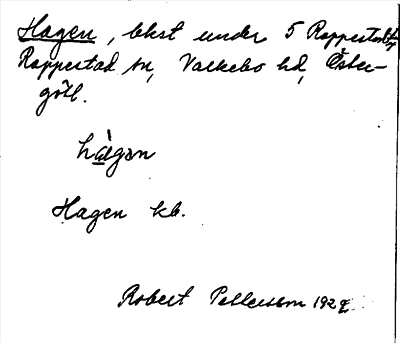 Hagen, lhst under 5 Rappestad
Rappestad sn, Valkebo hd, Öster-
götl.
hàgən
Hagen kb.
Robert Pettersson 1929